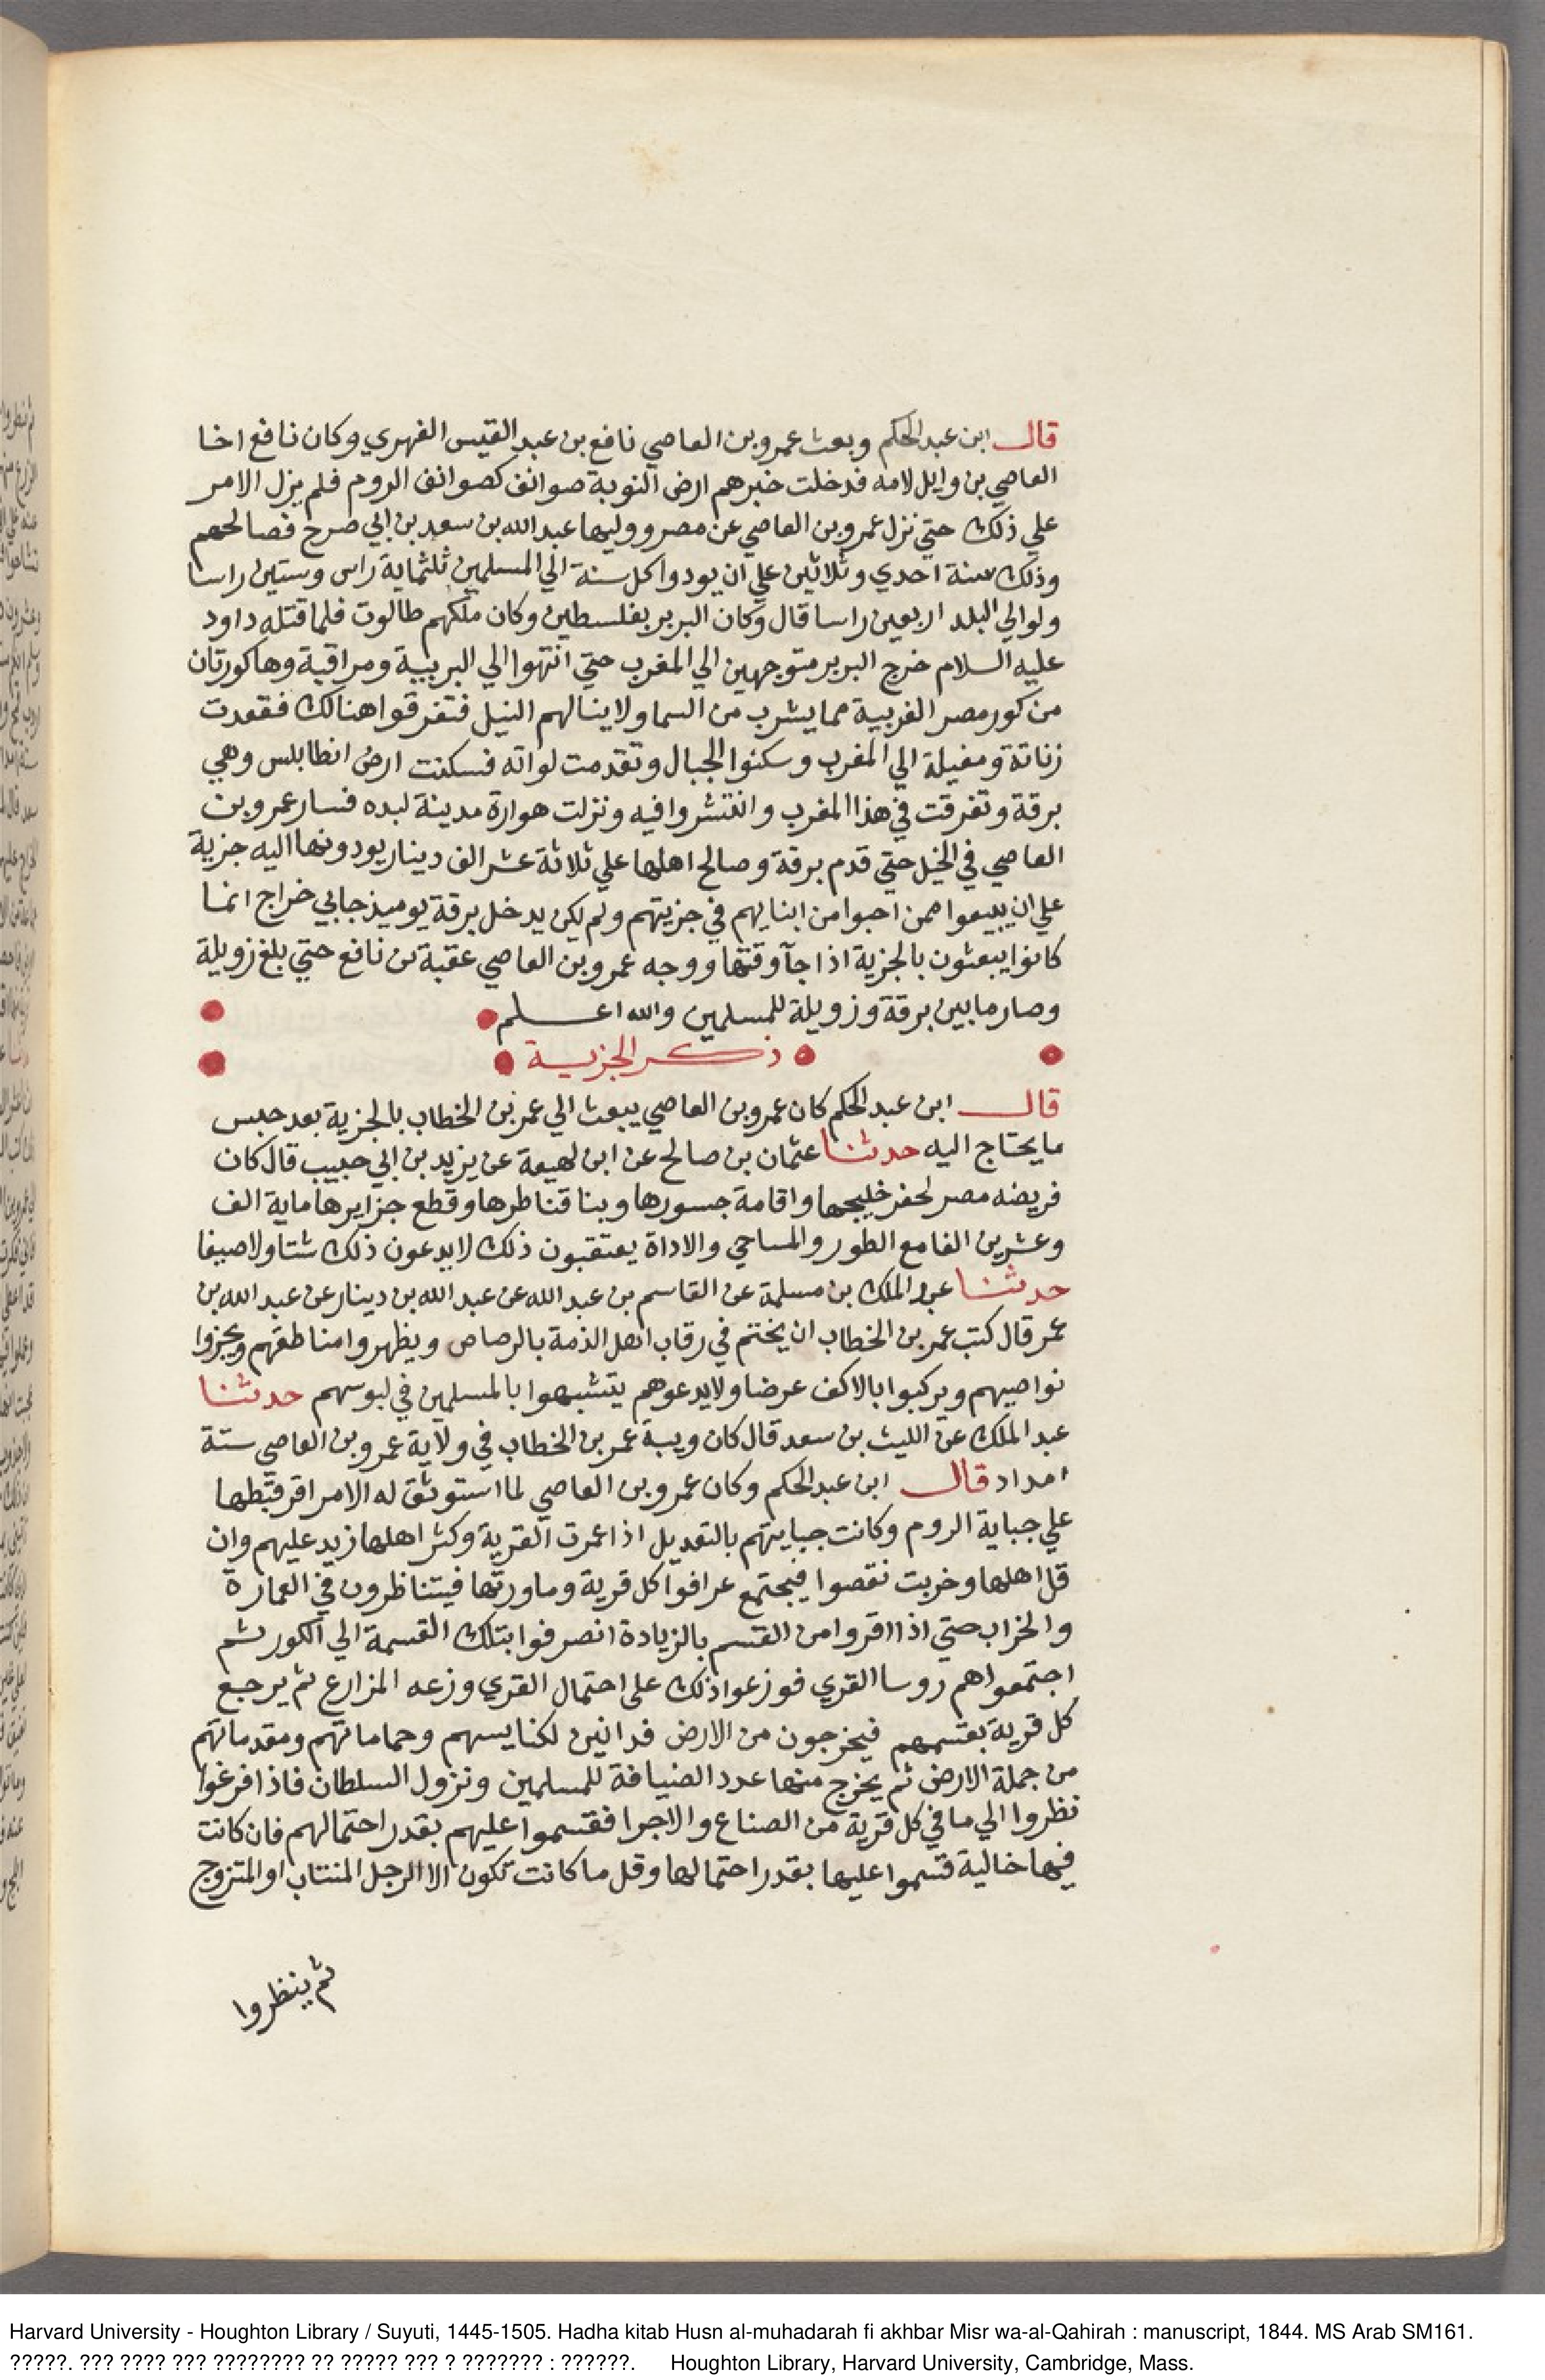 قال ابن عبد الحكم وبعث عمرو بن العاصي نافع بن عبد القيس الفهري وكان نافع اخا
العاصي بن وايل لامه فدخلت خبرهم ارض النوبة صوائف كصوائف الروم فلم يزل الامر
علي ذلك حتي نزل عمرو بن العاصي عن مصر ووليها عبد الله بن سعد بن ابي صرح فصالحهم
وذلك سنة احدي وثلاثين علي ان يودوا كل سنة الي المسلمين ثلثماية راس وستين راسا
ولوالي البلد اربعين راسا قال وكان البربر بفلسطين وكان ملكهم طالوت فلما قتله داود
عليه السلام خرج البربر متوجهين الي المغرب حتي انتهوا الي البربيية ومراقية وها كورتان
من كور مصر الغربية مما يشرب من السما ولا ينالهم النيل فتفرقوا هنالك فقعدت
زناتة ومغيلة الي المغرب وسكنوا الجبال وتقدمت لواته فسكنت ارض انطابلس وهي
برقة وتفرقت في هذا المغرب وانتشروا فيه ونزلت هوارة مدينة لبده فسار عمرو بن
العاصي في الخيل حتي قدم برقة وصالح اهلها علي ثلاثة عشر الف دينار يودونها اليه جزية
علي ان يبيعوا ممن احبوا من ابنايهم في جزيتهم ولم يكن يدخل برقة يوميذ جابي خراج انما
كانوا يبعثون بالجزية اذا جآ وقتها ووجه عمرو بن العاصي عقبة بن نافع حتي بلغ زويلة
وصار ما بين برقة وزويلة للمسلمين والله اعلم
ذكر الجزية
قال ابن عبد الحكم كان عمرو بن العاصي يبعث الي عمر بن الخطاب بالجزية بعد حبس
ما يحتاج اليه حدثنا عثمان بن صالح عن ابن لهيعة عن يزيد بن ابي حبيب قال كان
فريضه مصر لحفر خليجها واقامة جسورها وبنا قناطرها وقطع جزايرها ماية الف
وعشرين الفا مع الطور والمساحي والاداة يعتقبون ذلك لا يدعون ذلك شتا ولا صيفا
حدثنا عبد الملك بن مسلمة عن القاسم بن عبد الله عن عبد الله بن دينار عن عبد الله بن
عمر قال كتب عمر بن الخطاب ان يختم في رقاب اهل الذمة بالرصاص ويظهروا مناطقهم ويجزوا
نواصيهم ويركبوا بالاكف عرضا ولا يدعوهم يتشبهوا بالمسلمين في لبوسهم حدثنا
عبد الملك عن الليث بن سعد قال كان ويبة عمر بن الخطاب في ولاية عمرو بن العاصي ستة
امداد قال ابن عبد الحكم وكان عمرو بن العاصي لما استوثق له الامر اقر قبطها
علي جباية الروم وكانت جبايتهم بالتعديل اذا عمرت القرية وكثر اهلها زيد عليهم وان
قل اهلها وخربت نقصوا فيجتمع عرافوا كل قرية وماورتها فيتناظرون في العمارة
والخراب حتي اذا اقروا من القسم بالزيادة انصرفوا بتلك القسمة الي الكور ثم
اجتمعوا هم روسا القري فوزعوا ذلك علي احتمال القري وزعه المزارع ثم يرجع
كل قرية بقسمهم فيخرجون من الارض فدانين لكنايسهم وحماماتهم ومقدماتهم
من جملة الارض ثم يخرج منها عدد الضيافة للمسلمين ونزول السلطان فاذا فرغوا
نظروا الي ما في كل قرية من الصناع والاجرا فقسموا عليهم بقدر احتمالهم فان كانت
فيها خالية قسموا عليها بقدر احتمالها وقل ما كانت تكون الا الرجل المنتاب او المتزوج
ثم ينظروا
Harvard University - Houghton Library / Suyuti, 1445-1505. Hadha kitab Husn al-muhadarah fi akhbar Misr wa-al-Qahirah : manuscript, 1844. MS Arab SM161.
?????. ??? ???? ??? ???????? ?? ????? ??? ? ??????? : ??????. Houghton Library, Harvard University, Cambridge, Mass.